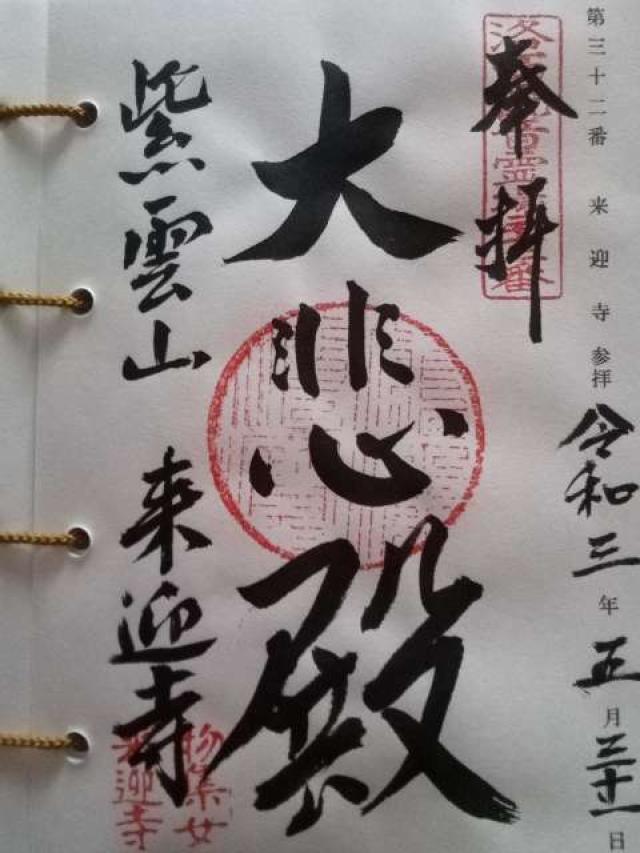 第三十二番 来迎寺参拝 令和三年五月三十一日
奉拝
大悲殿
紫雲山 来迎寺
物集女
来迎寺